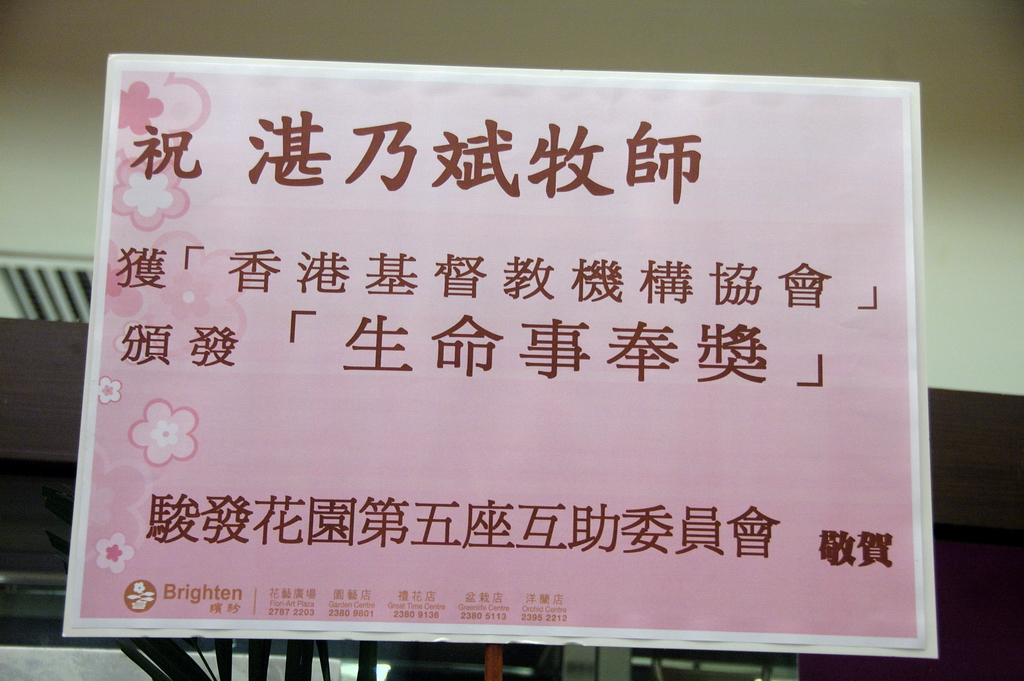 祝 湛乃斌牧師
獲「香港基督教機構協會」
頒發「生命事奉獎」
駿發花園第五座互助委員會 敬賀
Brighten
繽紛
花藝廣場
Flori-Art Plaza
2787 2203
園藝店
Garden Centre
2380 9801
禮花店
Great Time Centre
2380 9136
盆栽店
Greenlife Centre
2380 5113
洋蘭店
Orchid Centre
2395 2212